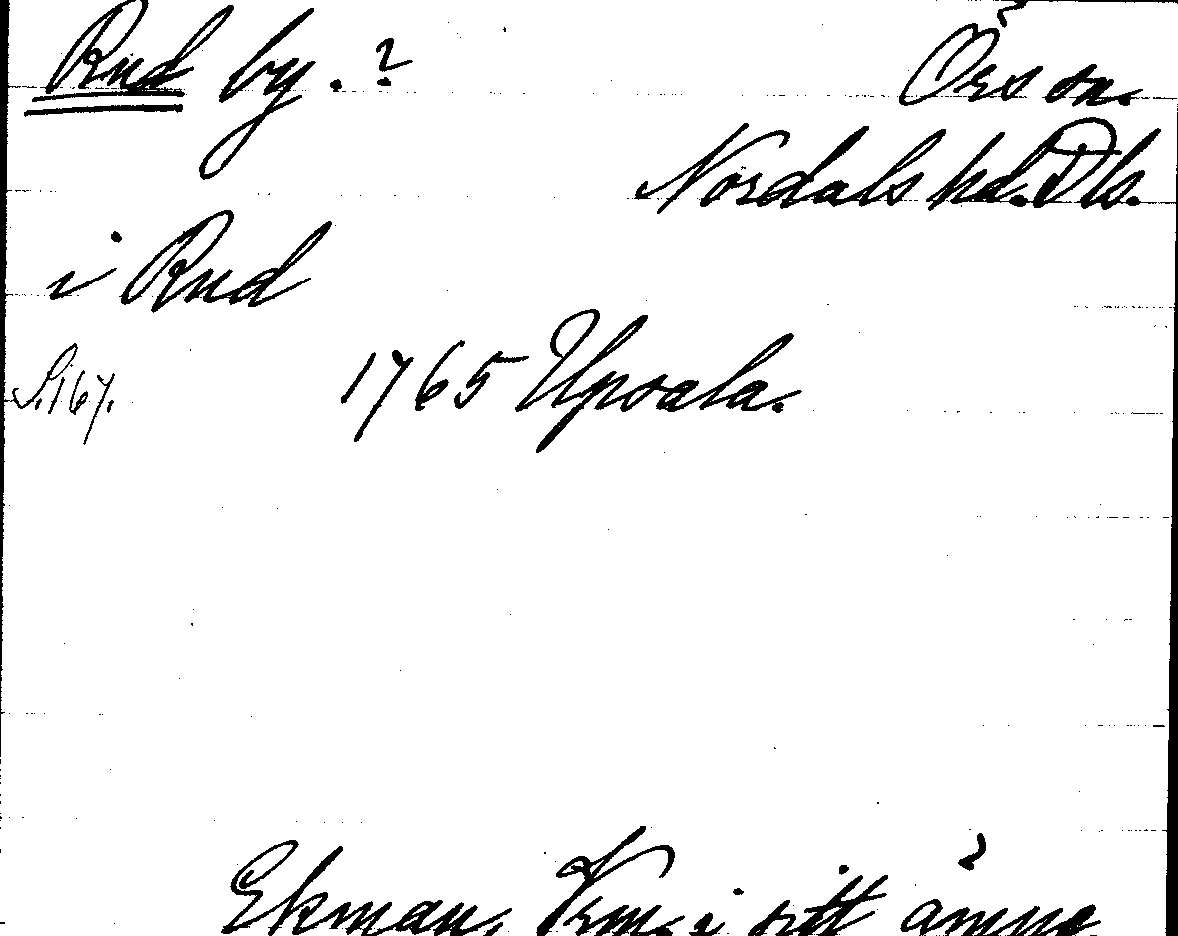 Rud by. ?
Örs sn.
Nordals hd. Dls.
i Rud
S. 167. 1765 Upsala.
Ekman, Vrm. i sitt ämne